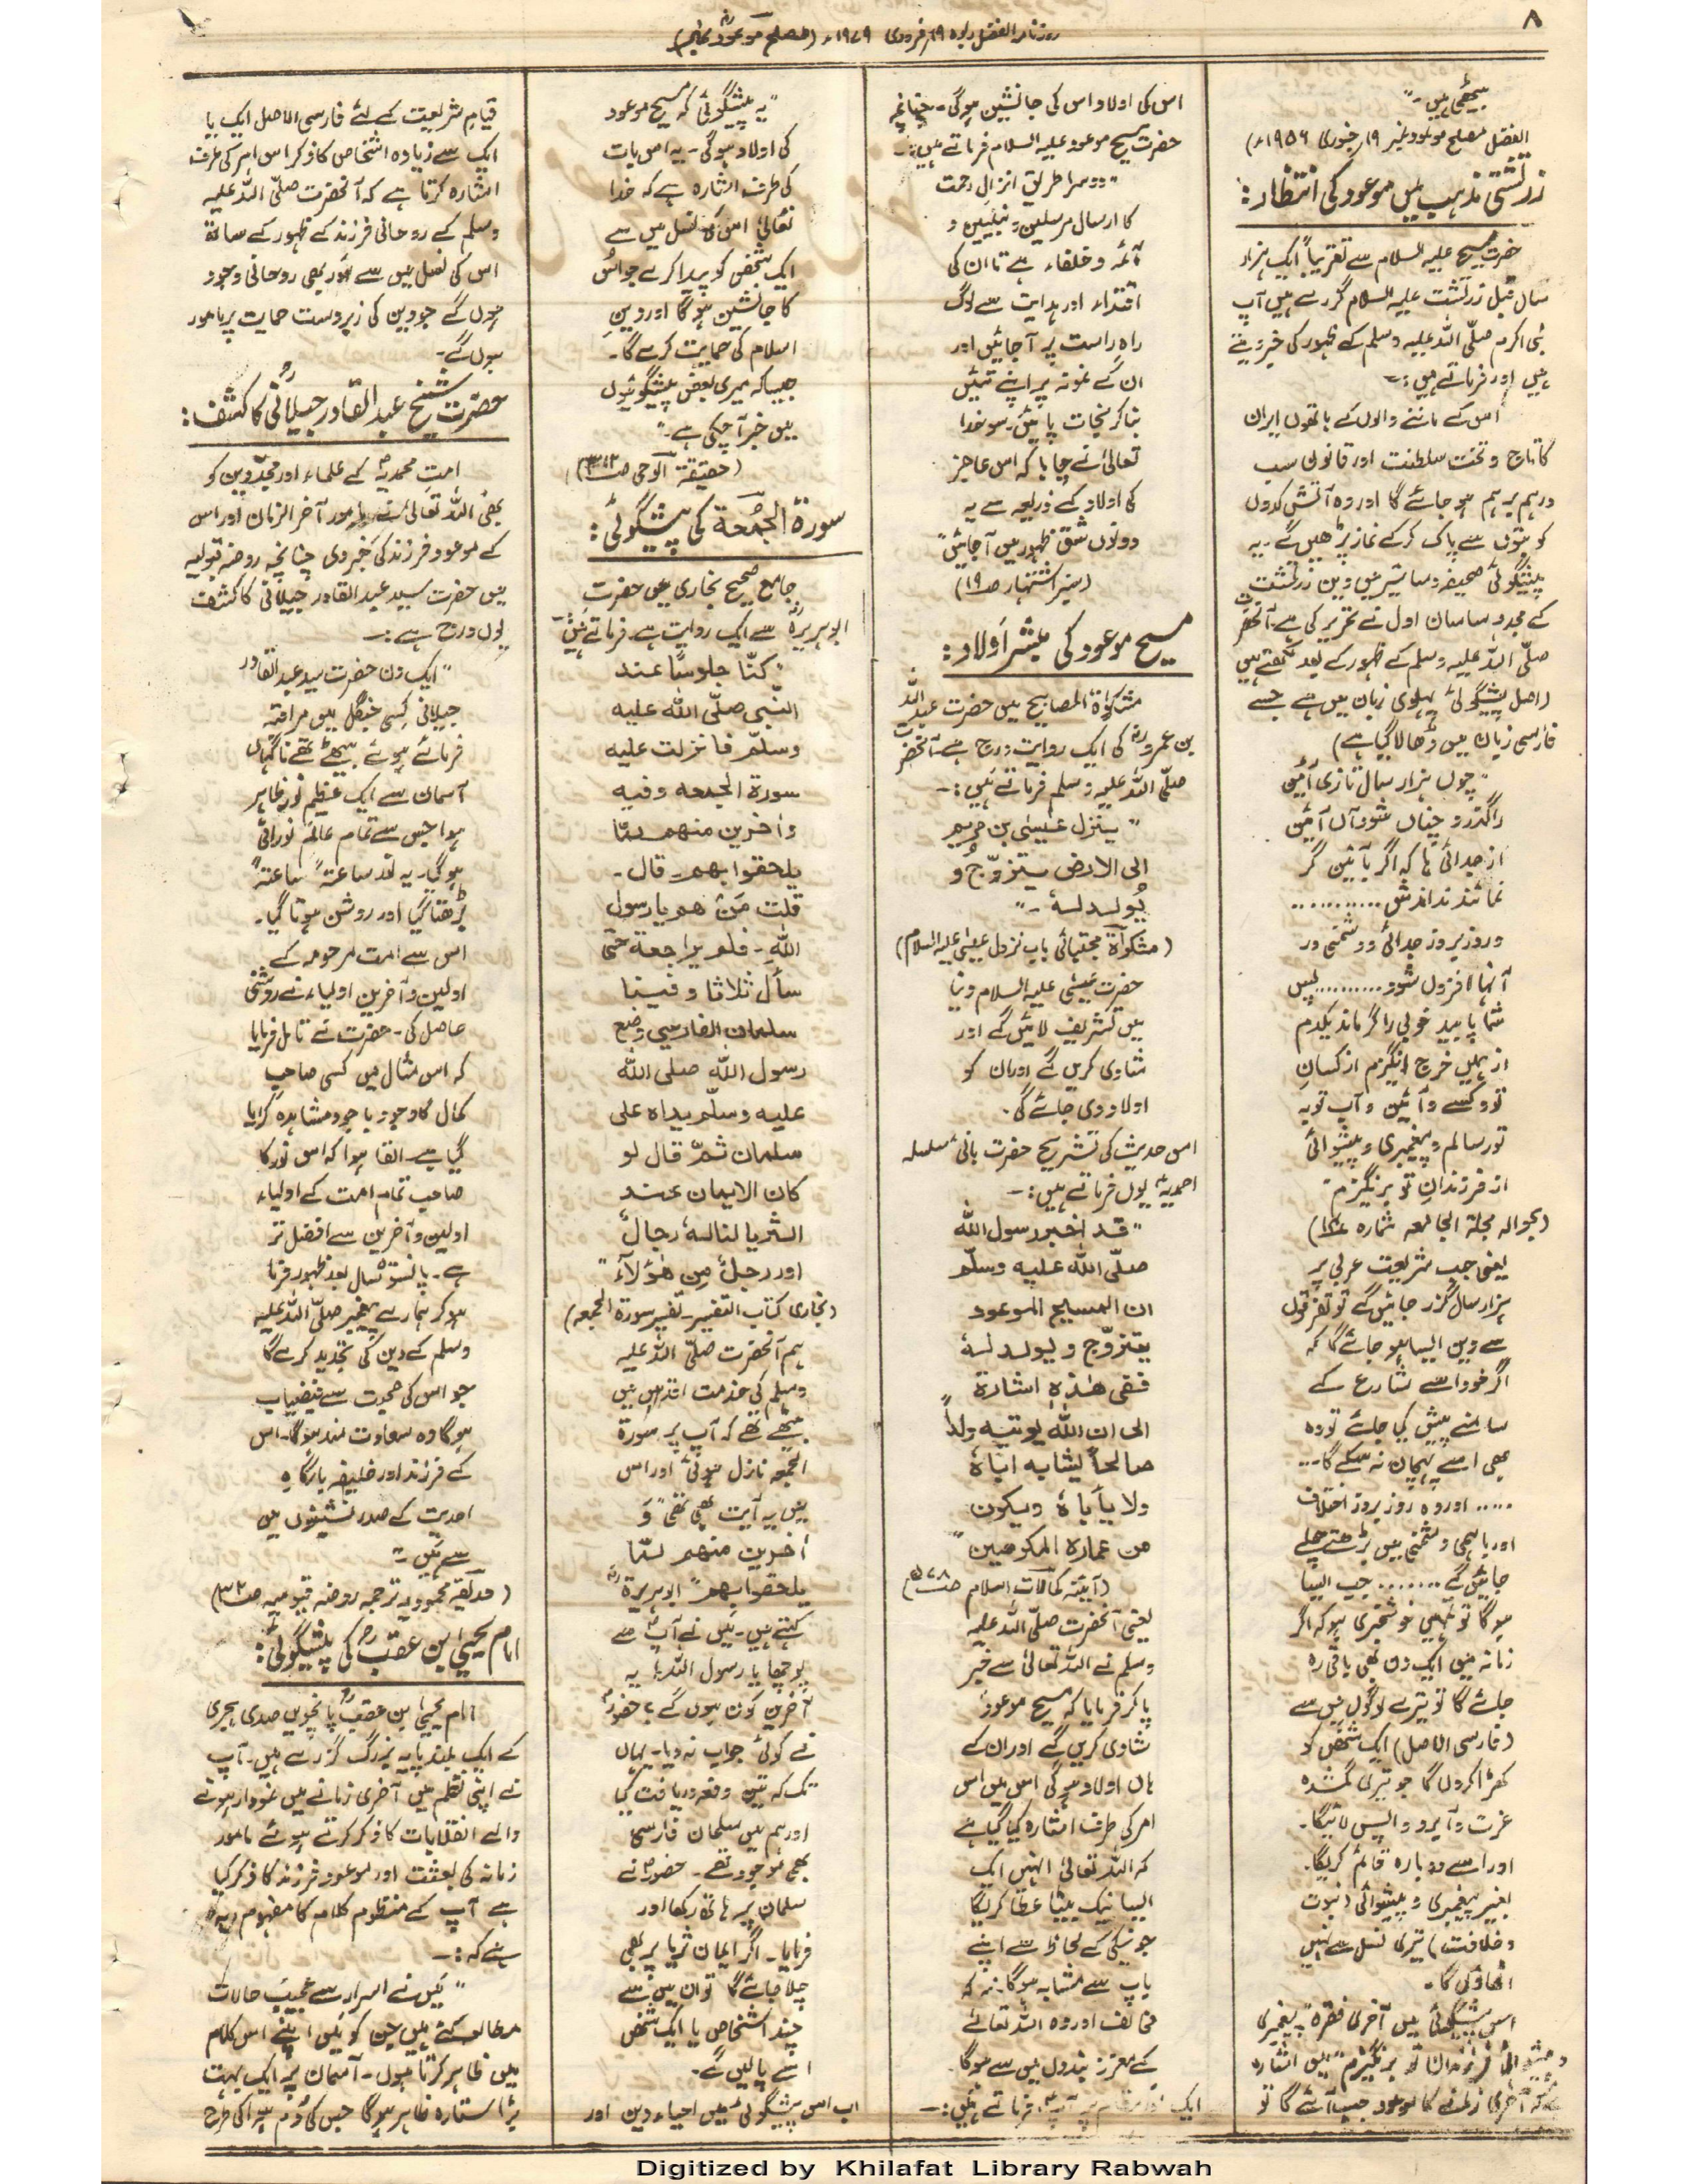 ۸
روزنامہ الفضل ربوہ ۱۹ فروری ۱۹۷۹ء (مصلح موعودؓ نمبر)
سمجھتی ہیں۔"
الفضل مصلح موعود نمبر ۱۹ جنوری ۱۹۵۶ء)
زرتشتی مذہب میں موعود کی انتظار:
حضرت مسیح علیہ السلام سے تقریباً ایک ہزار
سال قبل زرتشت علیہ السلام گزرے ہیں آپ
نبی اکرم صلّی اللہ علیہ وسلم کے ظہور کی خبر دیتے
ہیں اور فرماتے ہیں:۔
اُس کے ماننے والوں کے ہاتھوں ایران
کا تاج و تخت سلطنت اور قانون سب
درہم برہم ہو جائے گا اور وہ آتش کدوں
کو بتوں سے پاک کرکے نماز پڑھیں گے۔ یہ
پیشگوئی صحیفہ دساتیر میں دین زرتشت
کے مجدد ساسان اول نے تحریر کی ہے آنحضرت
صلّی اللہ علیہ وسلم کے ظہور کے بعد لکھتے ہیں
(اصل پیشگوئی پہلوی زبان میں ہے جسے
فارسی زبان میں ڈھالا گیا ہے)
"چوں ہزار سال تازی آئین
را گذرد چناں شود آں آئین
از جدائی ہا کہ اگر بآئین گر
نمائند نداندش ..........
و روز بروز جدائی و دشمنی در
آنہا افزوں شود .......... پس
شما یابید خوبی را گر ماند یکدم
از ہمیں خرچ انگیزم از کسانِ
تو و کسے و آئین و آب تو بہ
تو رسانم و پیغمبری و پیشوائی
از فرزندانِ تو برنگیزم"
(بحوالہ مجلۃ الجامعہ شمارہ
یعنی جب شریعت عربی پر
ہزار سال گزر جائیں گے تو تفرقوں
سے دین ایسا ہو جائے گا کہ
اگر خود اسے شارع کے
سامنے پیش کیا جائے تو وہ
بھی اسے پہچان نہ سکے گا ...
..... اور وہ روز بروز اختلاف
اور باہمی دشمنی میں بڑھتے چلے
جائیں گے ....... جب ایسا
ہوگا تو تمہیں خوشخبری ہو کہ اگر
زمانہ میں ایک دن بھی باقی رہ
جائے گا تو تیرے لوگوں میں سے
(فارسی الاصل) ایک شخص کو
کھڑا کروں گا جو تیری گمشدہ
عزت و آبرو واپس لائیگا۔
اور اسے دوبارہ قائم کریگا۔
بغیر پیغمبری و پیشوائی (نبوت
و خلافت) تیری نسل سے نہیں
اٹھاؤں گا۔
اس پیشگوئی میں آخری فقرہ "پیغمبری
و پیشوائی از فرزندان تو برنگیزم" میں اشارہ
ہے کہ آخری زمانے کا موعود جب آئے گا تو
اس کی اولاد اس کی جانشین ہوگی۔ چنانچہ
حضرت مسیح موعود علیہ السلام فرماتے ہیں:۔
"دوسرا طریق انزالِ رحمت
کا ارسال مرسلین و نبیّین و
آئمہ و خلفاء ہے تا ان کی
اقتداء اور ہدایت سے لوگ
راہِ راست پر آجائیں اور
ان کے نمونہ پر اپنے تئیں
بنا کر نجات پا جائیں۔ سو خدا
تعالیٰ نے چاہا کہ اس عاجز
کی اولاد کے ذریعہ سے یہ
دونوں شق ظہور میں آجائیں"
(سبز اشتہار ص ۱۹)
مسیح موعود کی مبشّر اولاد:
مشکوٰۃ المصابیح میں حضرت عبداللہ
بن عمروؓ کی ایک روایت درج ہے۔ آنحضرت
صلّی اللہ علیہ وسلم فرماتے ہیں:۔
"ینزل عیسٰی بن مریم
الی الارض یتزوّج و
یُولد لہٗ۔"
(مشکوٰۃ مجتبائی باب نزول عیسٰی علیہ السلام)
حضرت عیسٰی علیہ السلام دنیا
میں تشریف لائیں گے اور
شادی کریں گے اور ان کو
اولاد دی جائے گی۔
اس حدیث کی تشریح حضرت بانیٔ سلسلہ
احمدیہؑ یوں فرماتے ہیں:۔
"قد اخبر رسول اللہ
صلّی اللہ علیہ وسلّم
ان المسیح الموعود
یتزوّج و یولد لہٗ
ففی ھٰذہٖ اشارۃ
الی ان اللہ یؤتیہ ولداً
صالحاً یشابہ اباہٗ
ولا یأباہٗ ویکون
من عبادہ المکرمین"
(آئینہ کمالات اسلام
یعنی آنحضرت صلّی اللہ علیہ
وسلم نے اللہ تعالیٰ سے خبر
پا کر فرمایا کہ مسیح موعودؑ
شادی کریں گے اور ان کے
ہاں اولاد ہوگی اس میں اس
امر کی طرف اشارہ کیا گیا ہے
کہ اللہ تعالیٰ انہیں ایک
ایسا نیک بیٹا عطا کریگا
جو نیکی کے لحاظ سے اپنے
باپ سے مشابہ ہوگا۔ نہ کہ
مخالف اور وہ اللہ تعالےٰ
کے معزز بندوں میں سے ہوگا۔
ایک اور مقام پر آپؑ فرماتے ہیں:۔
"یہ پیشگوئی کہ مسیح موعود
کی اولاد ہوگی۔ یہ اس بات
کی طرف اشارہ ہے کہ خدا
تعالیٰ اس کی نسل میں سے
ایک شخص کو پیدا کرے جو اُس
کا جانشین ہوگا اور دینِ
اسلام کی حمایت کرے گا۔
جیسا کہ میری بعض پیشگوئیوں
میں خبر آ چکی ہے"
(حقیقۃ الوحی ص ۳۱۲)
سورۃ الجمُعۃ کی پیشگوئی:
جامع صحیح بخاری میں حضرت
ابوہریرۃؓ سے ایک روایت ہے۔ فرماتے ہیں:۔
"کنّا جلوسًا عند
النّبی صلّی اللہ علیہ
وسلّم فانزلت علیہ
سورۃ الجمعہ وفیہ
وآخرین منھم لمّا
یلحقوا بھم۔ قال۔
قلت مَنْ ھم یا رسول
اللہِ۔ فلم یراجعہ حتّی
سأل ثلاثا وفینا
سلمان الفارسی وضع
رسول اللہ صلی اللہ
علیہ وسلّم یداہ علی
سلمان ثمّ قال لو
کان الایمان عند
الثریا لنالہٗ رجالٌ
اور رجلٌ من ھٰؤلآء"
(بخاری کتاب التفسیر۔ تفسیر سورۃ الجمعہ)
ہم آنحضرت صلّی اللہ علیہ
وسلم کی خدمت اقدس میں
بیٹھے تھے کہ آپ پر سورۃ
الجمعہ نازل ہوئی اور اس
میں یہ آیت بھی تھی "وَ
آخرین منھم لمّا
یلحقوا بھم" ابوہریرۃؓ
کہتے ہیں۔ میں نے آپؐ سے
پوچھا یا رسول اللہؐ! یہ
آخرین کون ہوں گے؟ حضورؐ
نے کوئی جواب نہ دیا۔ یہاں
تک کہ تین دفعہ دریافت کیا
اور ہم میں سلمان فارسیؓ
بھی موجود تھے۔ حضورؐ نے
سلمان پر ہاتھ رکھا اور
فرمایا۔ اگر ایمان ثریا پر بھی
چلا جائے گا تو ان میں سے
چند اشخاص یا ایک شخص
اسے پالیں گے۔
اب اس پیشگوئی میں احیاء دین اور
قیامِ شریعت کے لئے فارسی الاصل ایک یا
ایک سے زیادہ اشخاص کا ذکر اس امر کی طرف
اشارہ کرتا ہے کہ آنحضرت صلّی اللہ علیہ
وسلم کے روحانی فرزند کے ظہور کے ساتھ
اس کی نسل میں سے اور بھی روحانی وجود
ہوں گے جو دین کی زبردست حمایت پر مامور
ہوں گے۔
حضرت شیخ عبدالقادر جیلانیؒ کا کشف:
امتِ محمدیہؐ کے علماء اور مجدّدین کو
بھی اللہ تعالیٰ نے مامور آخر الزمان اور اس
کے موعود فرزند کی خبر دی چنانچہ روضہ قیومیہ
میں حضرت سید عبدالقادر جیلانی کا کشف
یوں درج ہے:۔
"ایک دن حضرت سید عبدالقادر
جیلانی کسی جنگل میں مراقبہ
فرمائے ہوئے بیٹھے تھے ناگہاں
آسمان سے ایک عظیم نور ظاہر
ہوا جس سے تمام عالم نورانی
ہوگیا۔ یہ نور ساعتہً ساعتہً
بڑھتا گیا اور روشن ہوتا گیا۔
اس سے امت مرحومہ کے
اولین و آخرین اولیاء نے روشنی
حاصل کی۔ حضرت نے تامل فرمایا
کہ اس مثال میں کسی صاحبِ
کمال کا وجود باجود مشاہدہ کرایا
گیا ہے۔ القا ہوا کہ اس نور کا
صاحب تمام امت کے اولیاء
اولین و آخرین سے افضل تر
ہے۔ پانسو سال بعد ظہور فرما
ہو کر ہمارے پیغمبر صلّی اللہ علیہ
وسلم کے دین کی تجدید کرے گا
جو اس کی صحبت سے فیضیاب
ہوگا وہ سعادت مند ہوگا۔ اس
کے فرزند اور خلیفہ بارگاہِ
احدیت کے صدر نشینوں میں
سے ہیں۔"
(حدیقہ محمودیہ ترجمہ روضہ قیومیہ ص ۳۲)
امام یحییٰ بن عقبؒ کی پیشگوئی:
امام یحییٰ بن عقبؒ پانچویں صدی ہجری
کے ایک بلند پایہ بزرگ گزرے ہیں۔ آپ
نے اپنی نظم میں آخری زمانے میں نمودار ہونے
والے انقلابات کا ذکر کرتے ہوئے مامور
زمانہ کی بعثت اور موعود فرزند کا ذکر کیا
ہے آپ کے منظوم کلام کا مفہوم یہ
ہے کہ:۔
"میں نے اسرار سے عجیب حالات
مطالعہ کئے ہیں جن کو میں اپنے اس کلام
میں ظاہر کرتا ہوں۔ آسمان پر ایک بہت
بڑا ستارہ ظاہر ہوگا جس کی دُم ہوا کی طرح
Digitized by Khilafat Library Rabwah